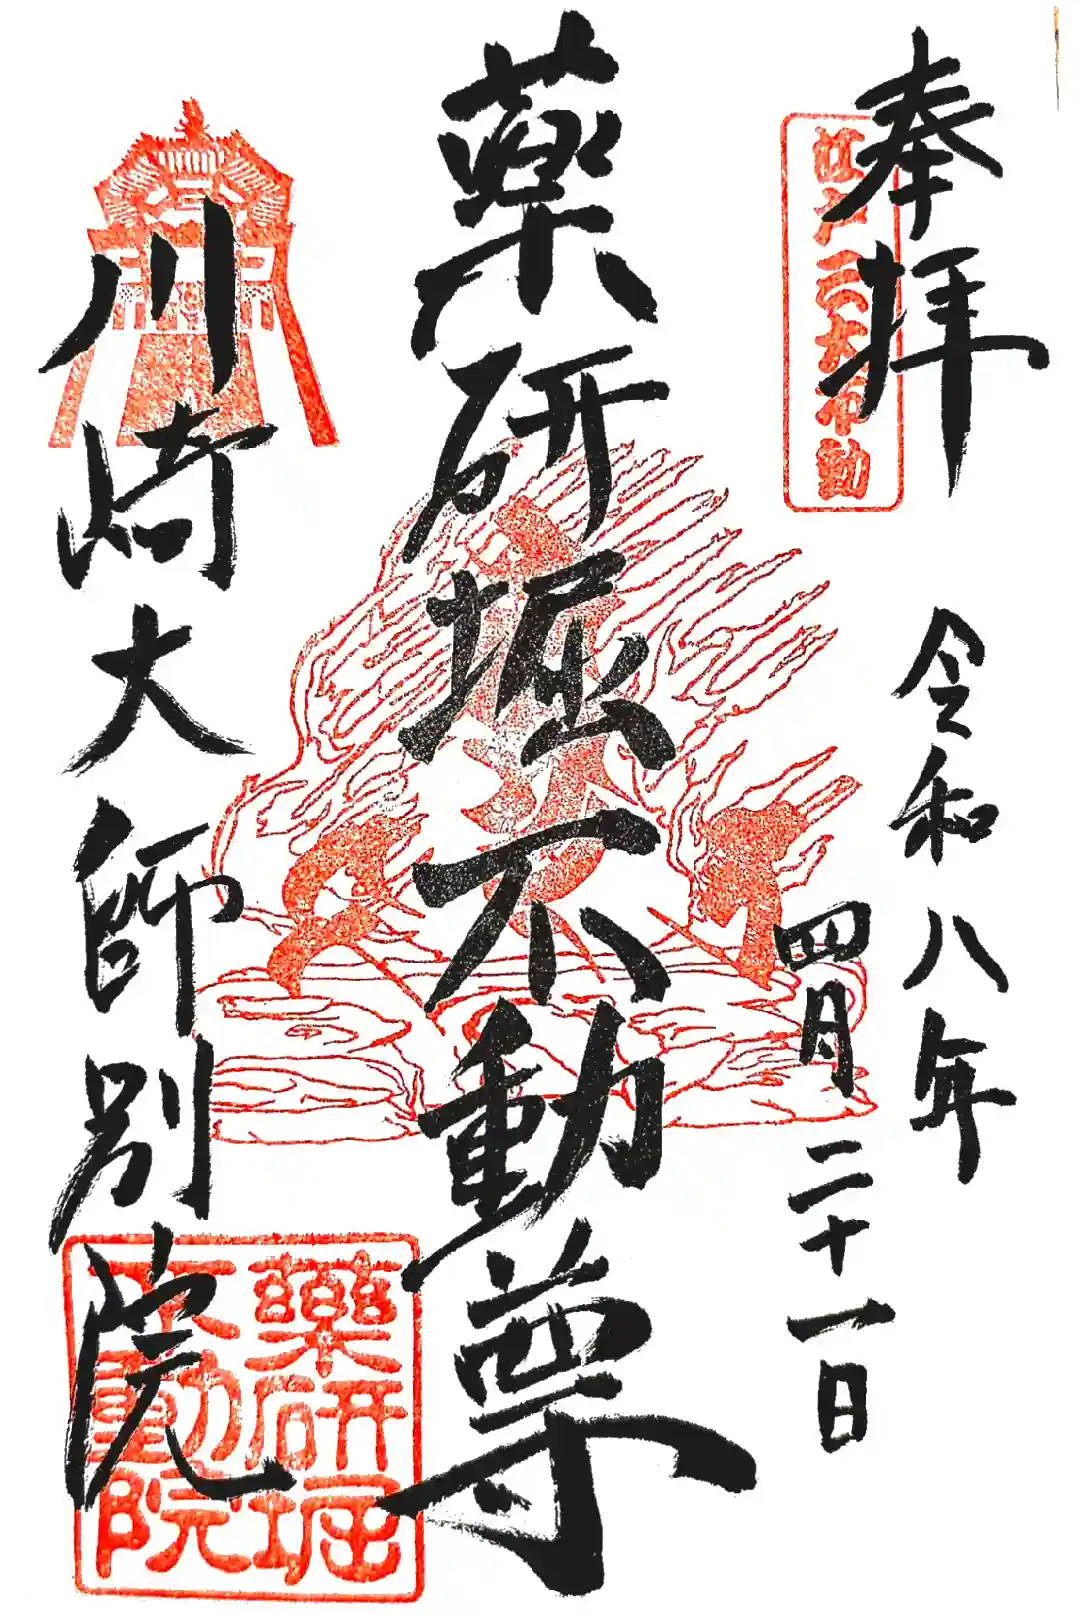 奉拝
江戸三大不動
令和八年
四月二十一日
薬研堀不動尊
川崎大師別院
薬研堀
不動院